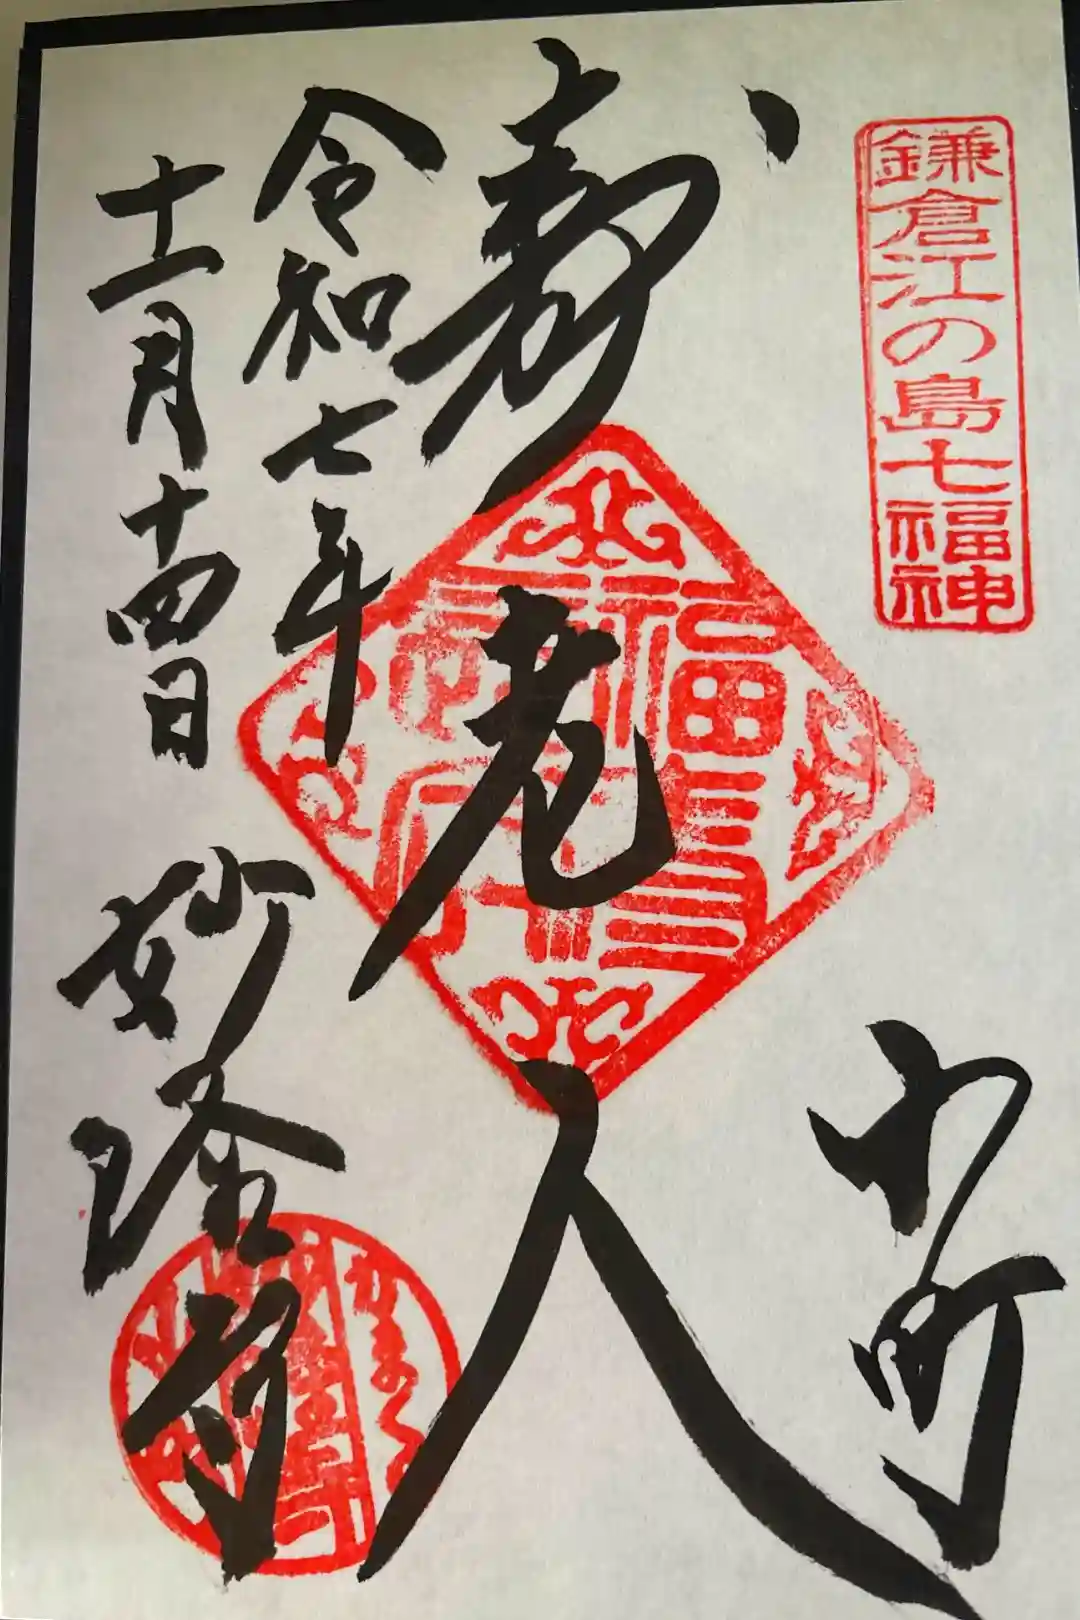 鎌倉江の島七福神
小町
寿老人
令和七年
十一月十四日
妙隆寺
福寿
かまくら